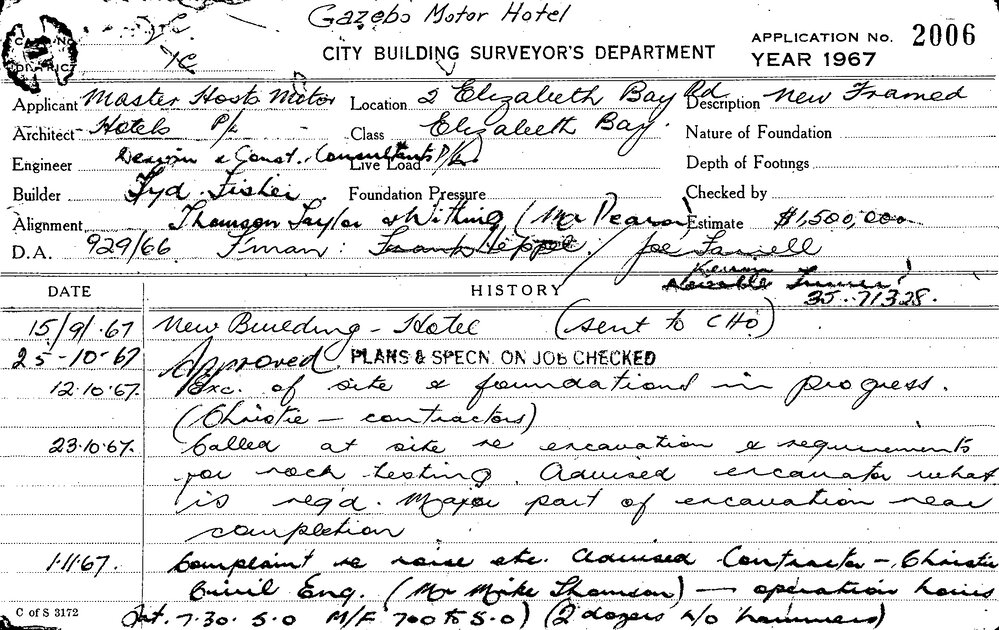 Gazebo Motor Hotel
CITY BUILDING SURVEYOR'S DEPARTMENT
APPLICATION No. 2006
YEAR 1967
Applicant Master Hosts Motor Location 2 Elizabeth Bay Rd Description New Framed
Architect Hotels P/L Class Elizabeth Bay. Nature of Foundation
Engineer Design & Const. Consultants P/L Live Load Depth of Footings
Builder Syd. Fisher Foundation Pressure Checked by
Alignment Thomson Taylor & Withing (Mr Pearson) Estimate $1,500,000
D.A. 929/66 F'man: Joe Farrell
35.71328.
DATE HISTORY
15/9/.67 New Building - Hotel (sent to CHO)
25-10-67 Approved PLANS & SPECN. ON JOB CHECKED
12.10.67. Exc. of site & foundations in progress.
(Christie - contractors)
23.10.67. Called at site re excavation & requirements
for rock testing. Advised excavator what
is req'd. Major part of excavation near
completion
1.11.67. Complaint re noise etc. Advised Contractor - Christie
Civil Eng. (Mr Mike Thomson) - operation hours
Sat. 7.30. 5.0 M/F 7.00 to 5.0) (2 dozers w/o hammers)
C of S 3172